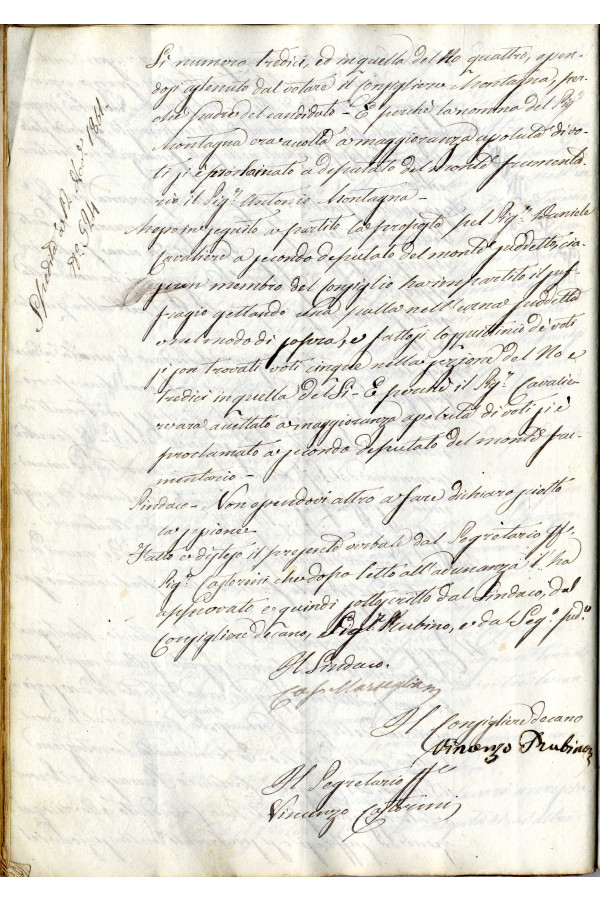 Spedita li 12 1861.
N.º 524
Si numero tredici, ed in quella del No quattro, essen-
dosi astenuto dal votare il Consigliere Montagna, per-
che Padre del candidato - E perchè la nomina del Sigr
Montagna era accolta a maggioranza assoluta di vo-
ti si è proclamato a deputato del monte frumenta-
rio il Sigr Antonio Montagna -
Messo in seguito a partito la proposta pel Sigr Daniele
Cavaliere a secondo deputato del monte suddetto, cia-
scun membro del Consiglio ha impartito il suf-
fragio gettando una palla nell'urna suddetta
e nel modo di sopra, e fattosi lo squittinio de' voti
si son trovati voti cinque nella sezione del No e
tredici in quella del Si - E perchè il Sigr Cavalie-
re era accettato a maggioranza assoluta di voti si è
proclamato a secondo deputato del monte fru-
mentario -
Sindaco - Non essendovi altro a fare dichiaro sciolta
la sessione
Fatto e disteso il presente verbale dal Segretario ff.e
Sigr Casterini che dopo letto all'adunanza l'ha
approvato e quindi sottoscritto dal Sindaco, dal
Consigliere decano, Sigr Rubino, e dal Sego sudo
Il Sindaco
Il Consigliere decano
Vincenzo Rubino
Il Segretario ff.e
Vincenzo Casterini